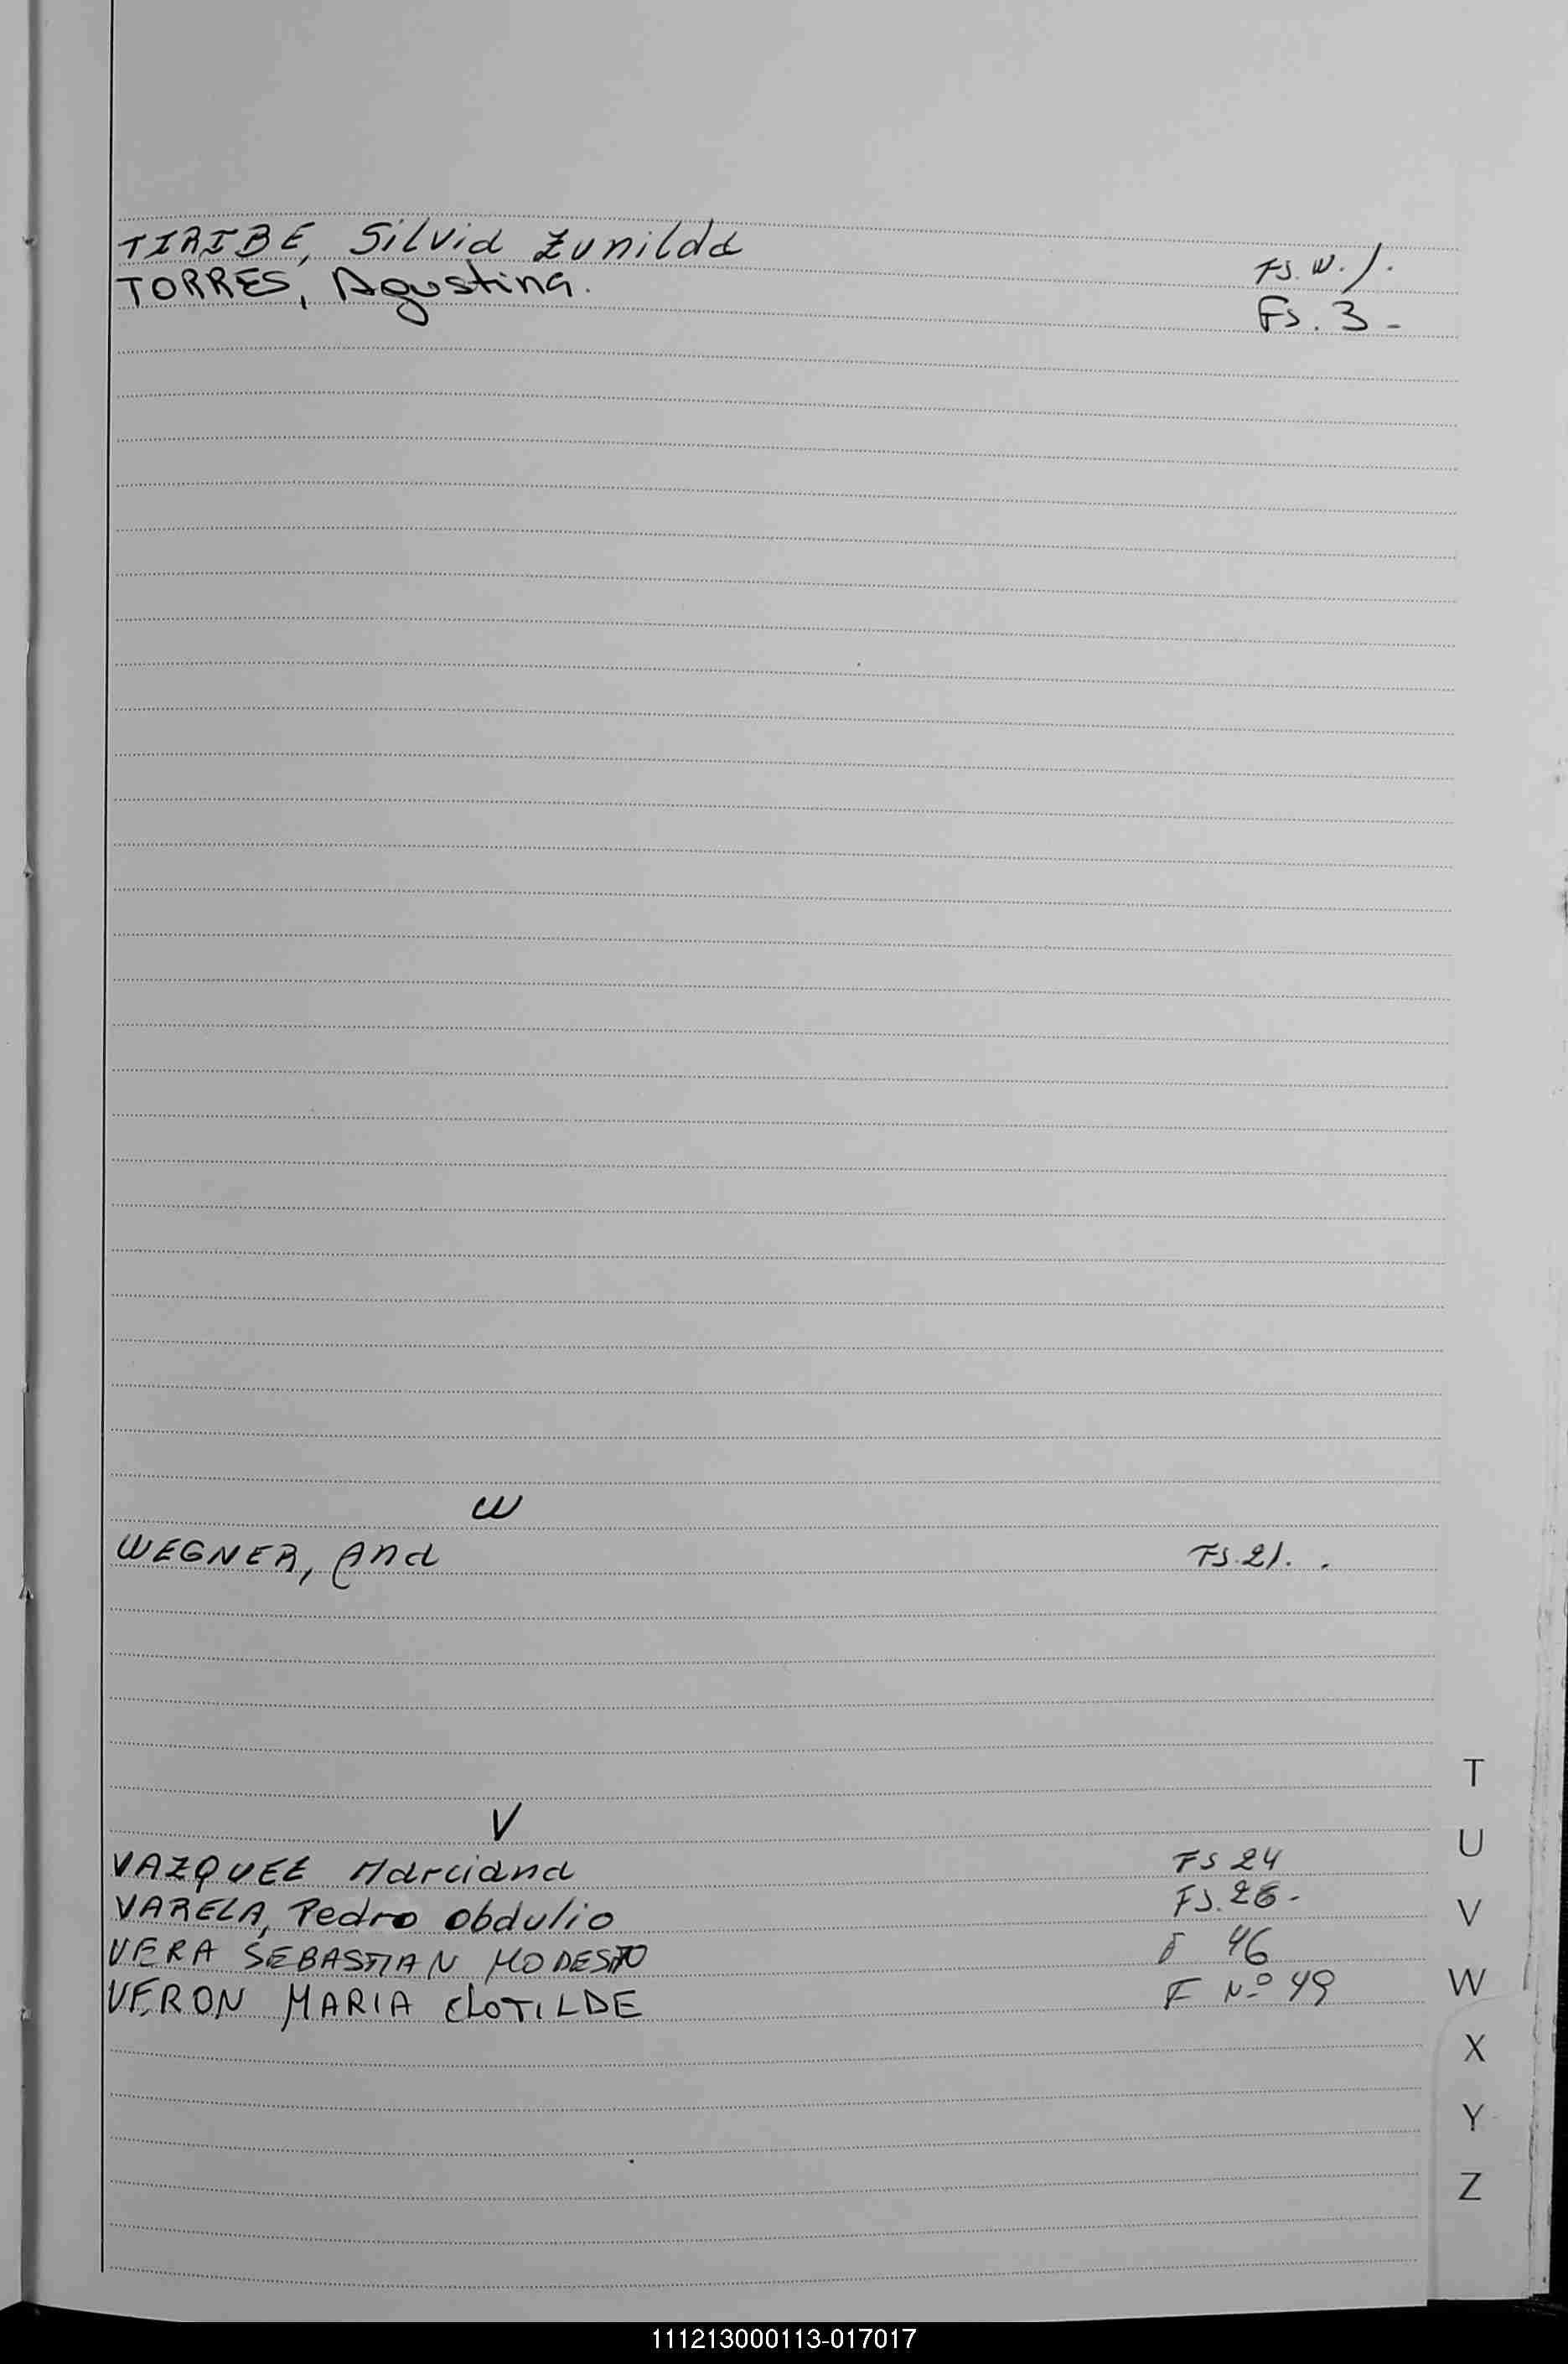 TIRIBE, Silvia Zunilda Fs. W. 1.
TORRES, Agustina. Fs. 3 -
W
WEGNER, Ana Fs. 21. .
V
VAZQUEZ Marciana Fs 24
VARELA, Pedro Obdulio Fs. 26-
VERA SEBASTIAN MODESTO F 46
VERON MARIA CLOTILDE F Nº 49
T
U
V
W
X
Y
Z
111213000113-017017